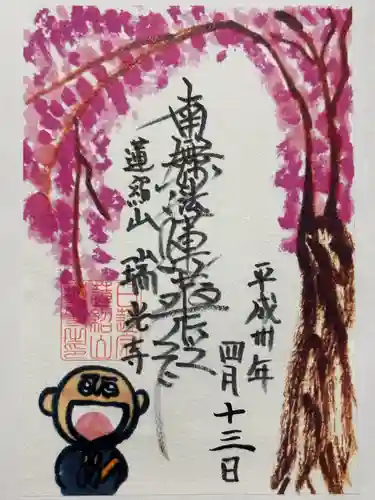 平成卅一年
四月十三日
南無妙法蓮華経
蓮紹山
瑞光寺